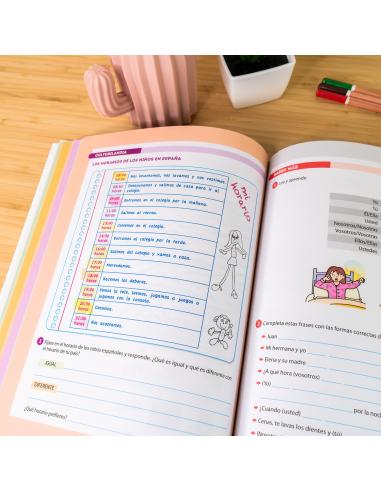 CULTURILANDIA
LOS HORARIOS DE LOS NIÑOS EN ESPAÑA
mi horario
horas Nos levantamos, nos lavamos y nos vestimos.
horas Desayunamos y salimos de casa para ir al
colegio.
horas Entramos en el colegio por la mañana.
11:00
horas Salimos al recreo.
horas Comemos en el colegio.
horas Entramos en el colegio por la tarde.
16:00
horas Salimos del colegio y vamos a casa.
17:00
horas Merendamos.
horas Hacemos los deberes.
19:00
horas Vemos la tele, leemos, jugamos a juegos o
jugamos con la consola.
20:30
horas Cenamos.
22:00
horas Nos acostamos.
Fíjate en el horario de los niños españoles y responde. ¿Qué es igual y qué es diferente con
el horario de tu país?
IGUAL
DIFERENTE
¿Qué horario prefieres?
MÁS
1 Lee y aprende.
Yo
Tú
Él/Ella
Usted
Nosotros/Nosotras
Vosotros/Vosotras
Ellos/Ellas
Ustedes
2 Completa estas frases con las formas correctas
Juan
Mi hermana y yo
Elena y su madre
¿A qué hora (vosotros)
(Tú)
¿Cuándo (usted)
por la
Cenas, te lavas los dientes y (tú)